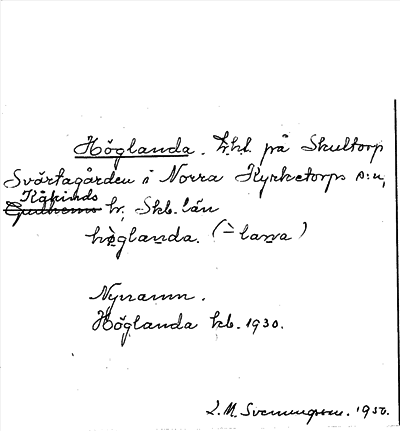 Höglanda. hhl. på Skultorp
Svärtagården i Norra Kyrketorps s:n,
Kåkinds
Gudhems hr, Skb. län
hø̀glanda. (-̀ lana)
Nynamn.
Höglanda kb. 1930.
L. M. Svenungsson. 1950.